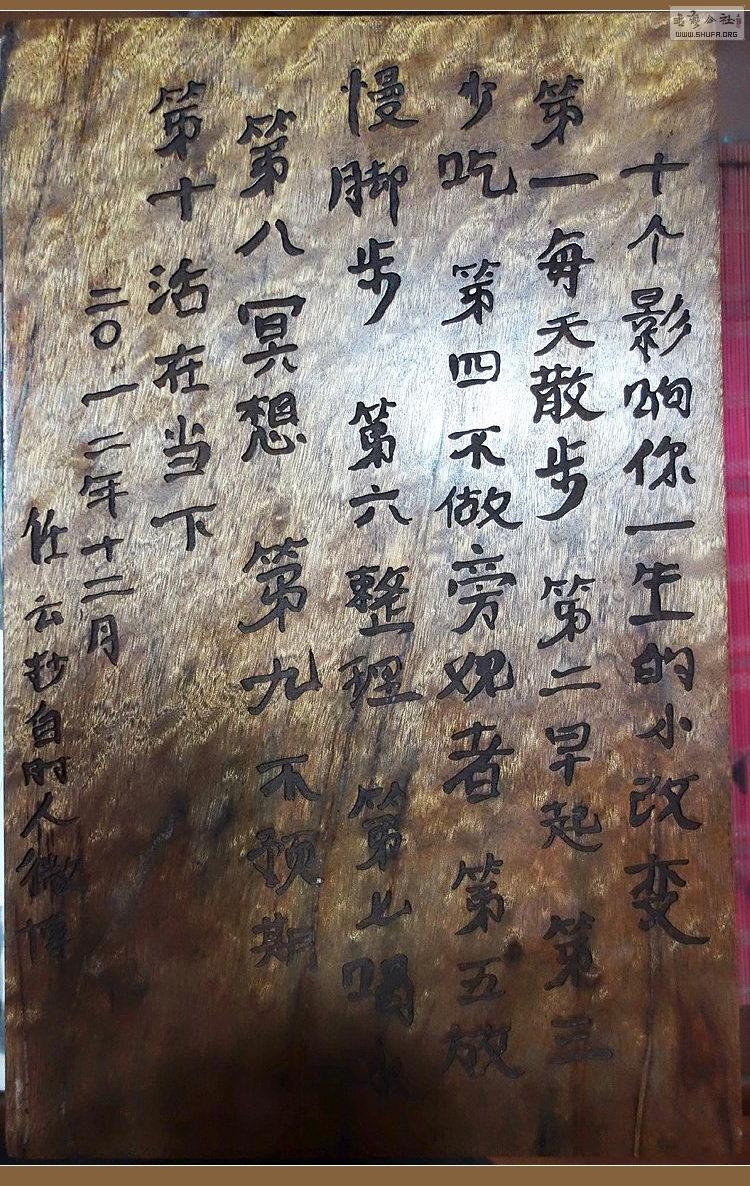 十个影响你一生的小改变
第一每天散步 第二早起 第三
少吃 第四不做旁观者 第五放
慢脚步 第六整理 第七喝水
第八冥想 第九不预期
第十活在当下
二〇一二年十二月
云抄自时人微博
WWW.SHUFA.ORG